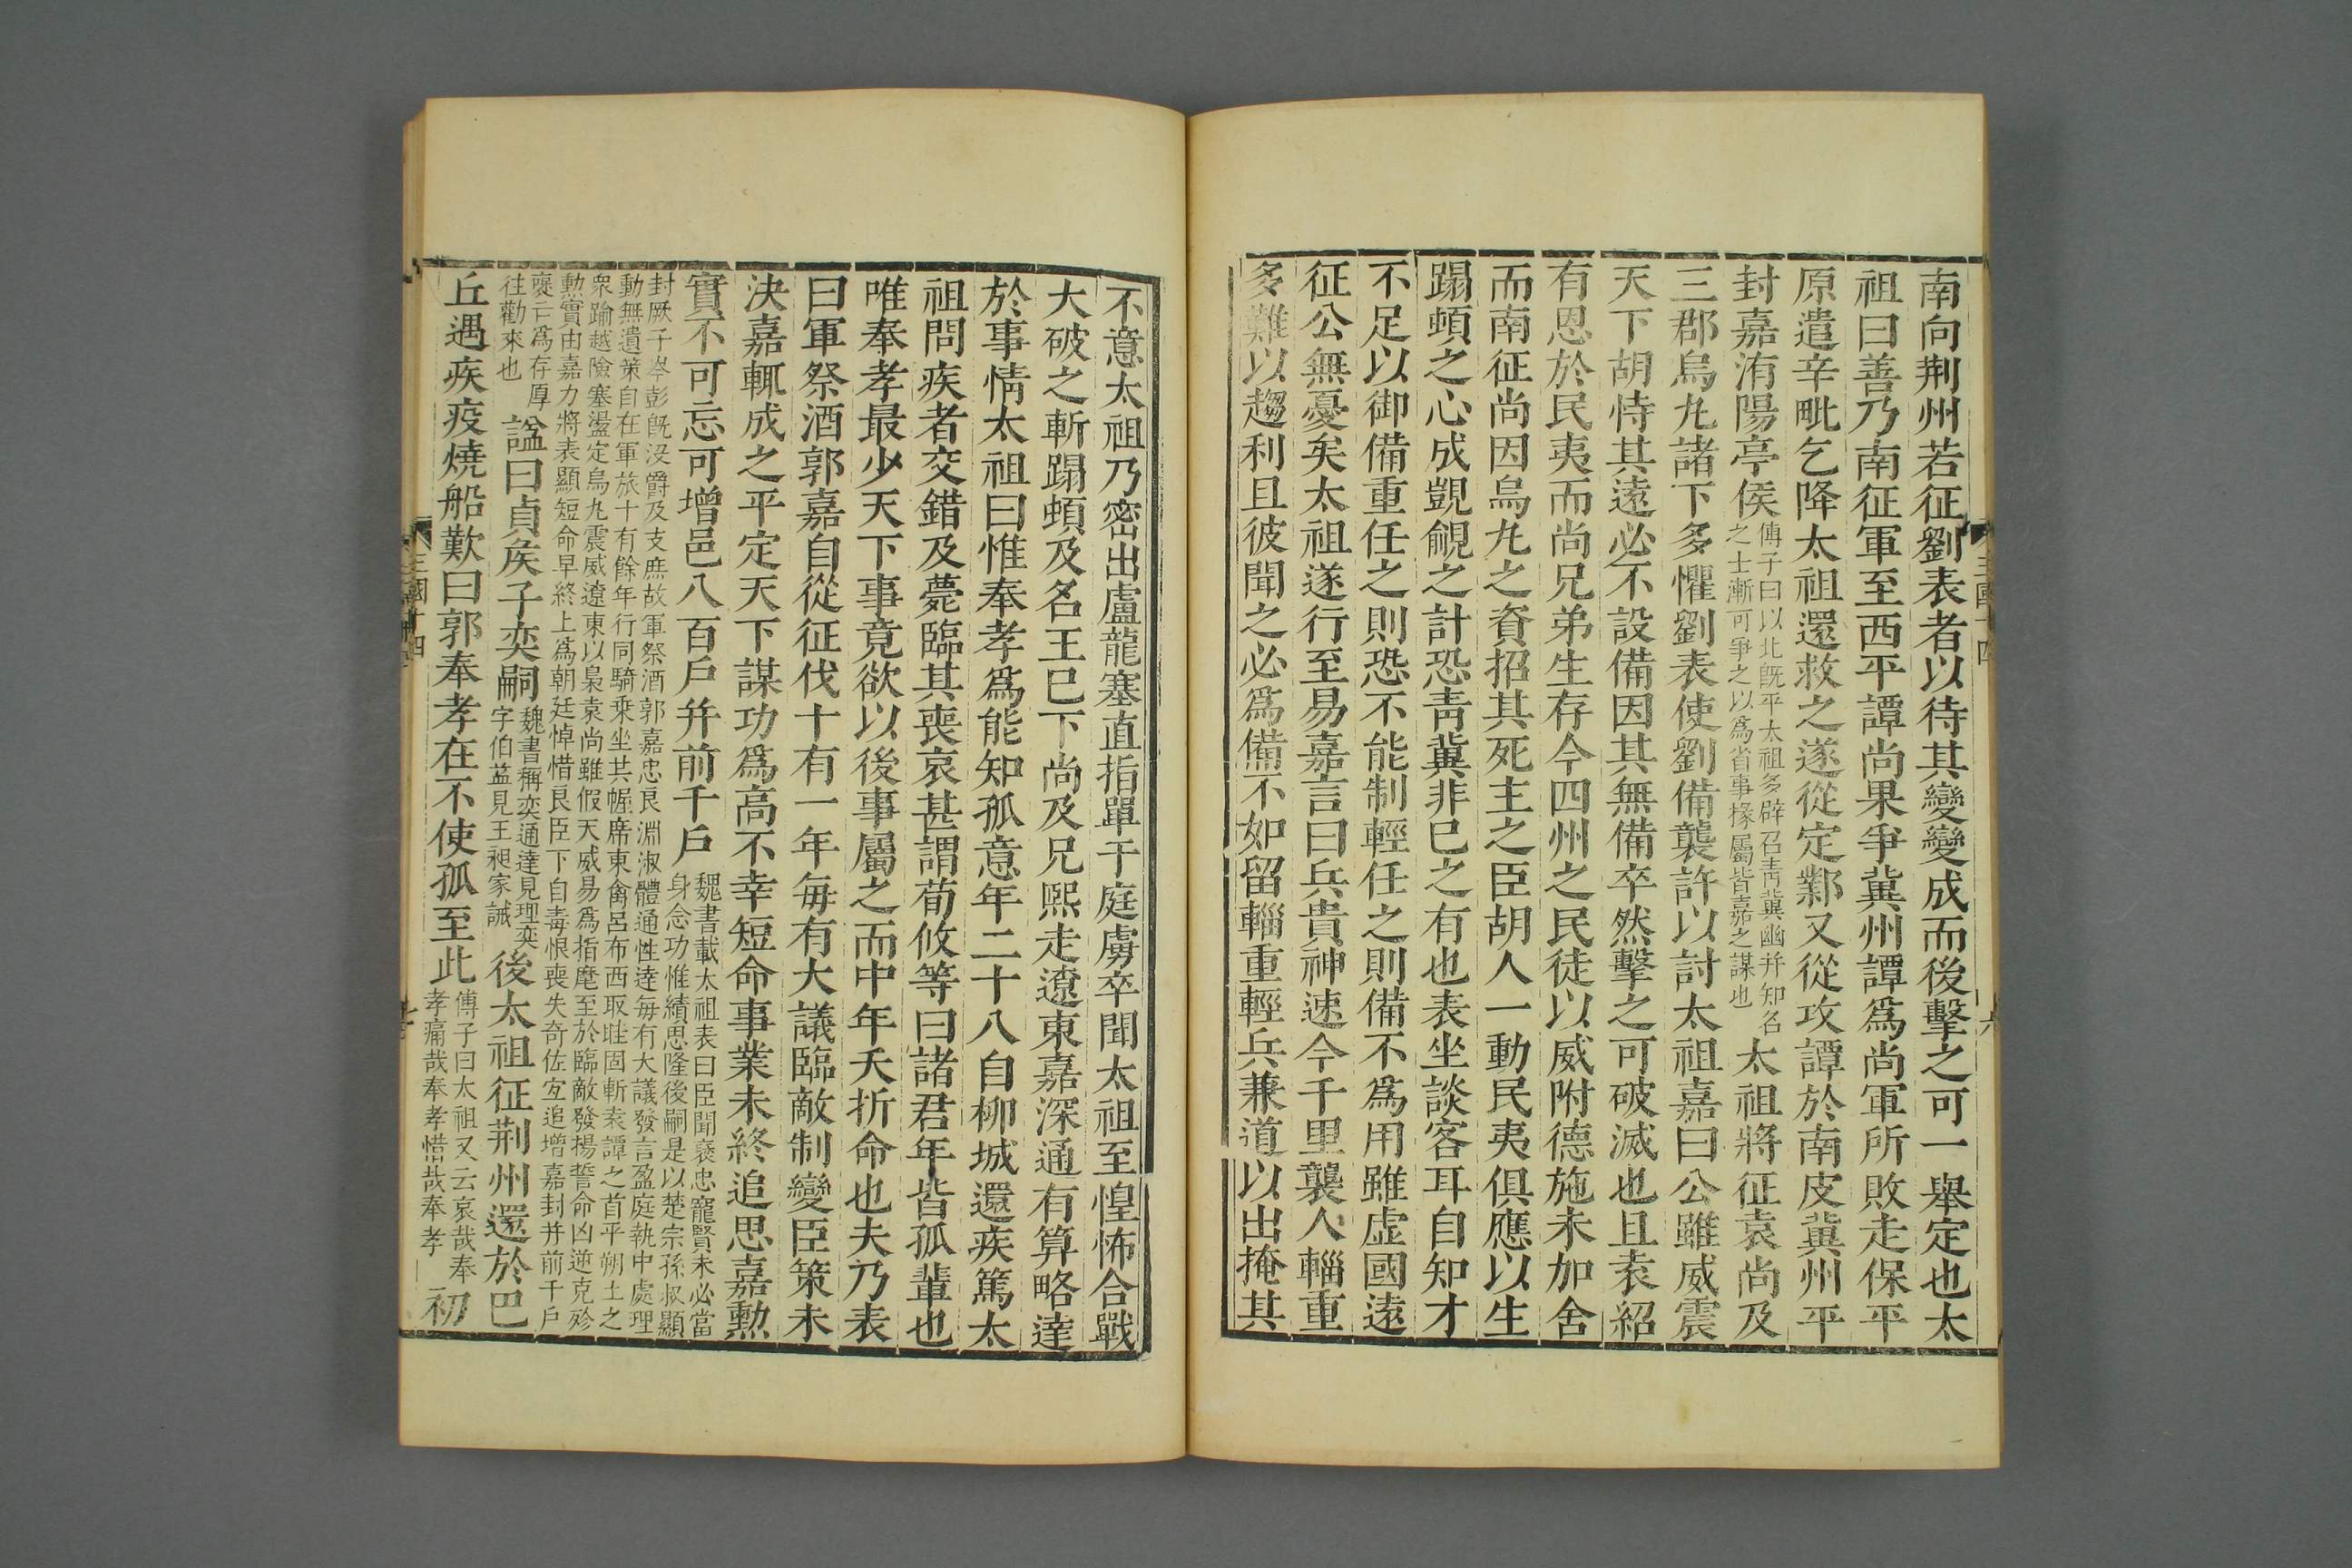 南向荆州若征劉表者以待其變變成而後擊之可一舉定也太
祖曰善乃南征軍至西平譚尚果爭冀州譚爲尚軍所敗走保平
原遣辛毗乞降太祖還救之遂從定鄴又從攻譚於南皮冀州平
封嘉洧陽亭侯
傅子曰以北旣平太祖多辟召靑冀幽并知名
之士漸可爭之以爲省事掾屬皆嘉之謀也
太祖將征袁尚及
三郡烏丸諸下多懼劉表使劉備襲許以討太祖嘉曰公雖威震
天下胡恃其遠必不設備因其無備卒然擊之可破滅也且袁紹
有恩於民夷而尚兄弟生存今四州之民徒以威附德施未加舍
而南征尚因烏丸之資招其死主之臣胡人一動民夷俱應以生
蹋頓之心成覬覦之計恐靑冀非已之有也表坐談客耳自知才
不足以御備重任之則恐不能制輕任之則備不爲用雖虚國遠
征公無憂矣太祖遂行至易嘉言曰兵貴神速今千里襲人輜重
多難以趨利且彼聞之必爲備不如留輜重輕兵兼道以出掩其
不意太祖乃密出盧龍塞直指單于庭虜卒聞太祖至惶怖合戰
大破之斬蹋頓及名王已下尚及兄熙走遼東嘉深通有算略達
於事情太祖曰惟奉孝爲能知孤意年二十八自柳城還疾篤太
祖問疾者交錯及薨臨其喪哀甚謂荀攸等曰諸君年皆孤輩也
唯奉孝最少天下事竟欲以後事屬之而中年夭折命也夫乃表
曰軍祭酒郭嘉自從征伐十有一年每有大議臨敵制變臣策未
決嘉輒成之平定天下謀功爲高不幸短命事業未終追思嘉勲
實不可忘可增邑八百戶并前千戶
魏書載太祖表曰臣聞襃忠寵賢未必當
身念功惟績思隆後嗣是以楚宗孫叔顯
封厥子岑彭旣沒爵及支庶故軍祭酒郭嘉忠良淵淑體通性達每有大議發言盈庭執中處理
動無遺策自在軍旅十有餘年行同騎乗坐共幄席東禽呂布西取眭固斬袁譚之首平朔土之
衆踰越險塞盪定烏丸震威遼東以梟袁尚雖假天威易爲指麾至於臨敵發揚誓命凶逆克殄
勲實由嘉方將表顯短命早終上爲朝廷悼惜良臣下自毒恨喪失奇佐宜追增嘉封并前千戶
襃亡爲存厚
往勸來也
諡曰貞矦子奕嗣
魏書稱奕通達見理奕
字伯益見王昶家誡
後太祖征荆州還於巴
丘遇疾疫燒船歎曰郭奉孝在不使孤至此
傅子曰太祖又云哀哉奉
孝痛哉奉孝惜哉奉孝
初